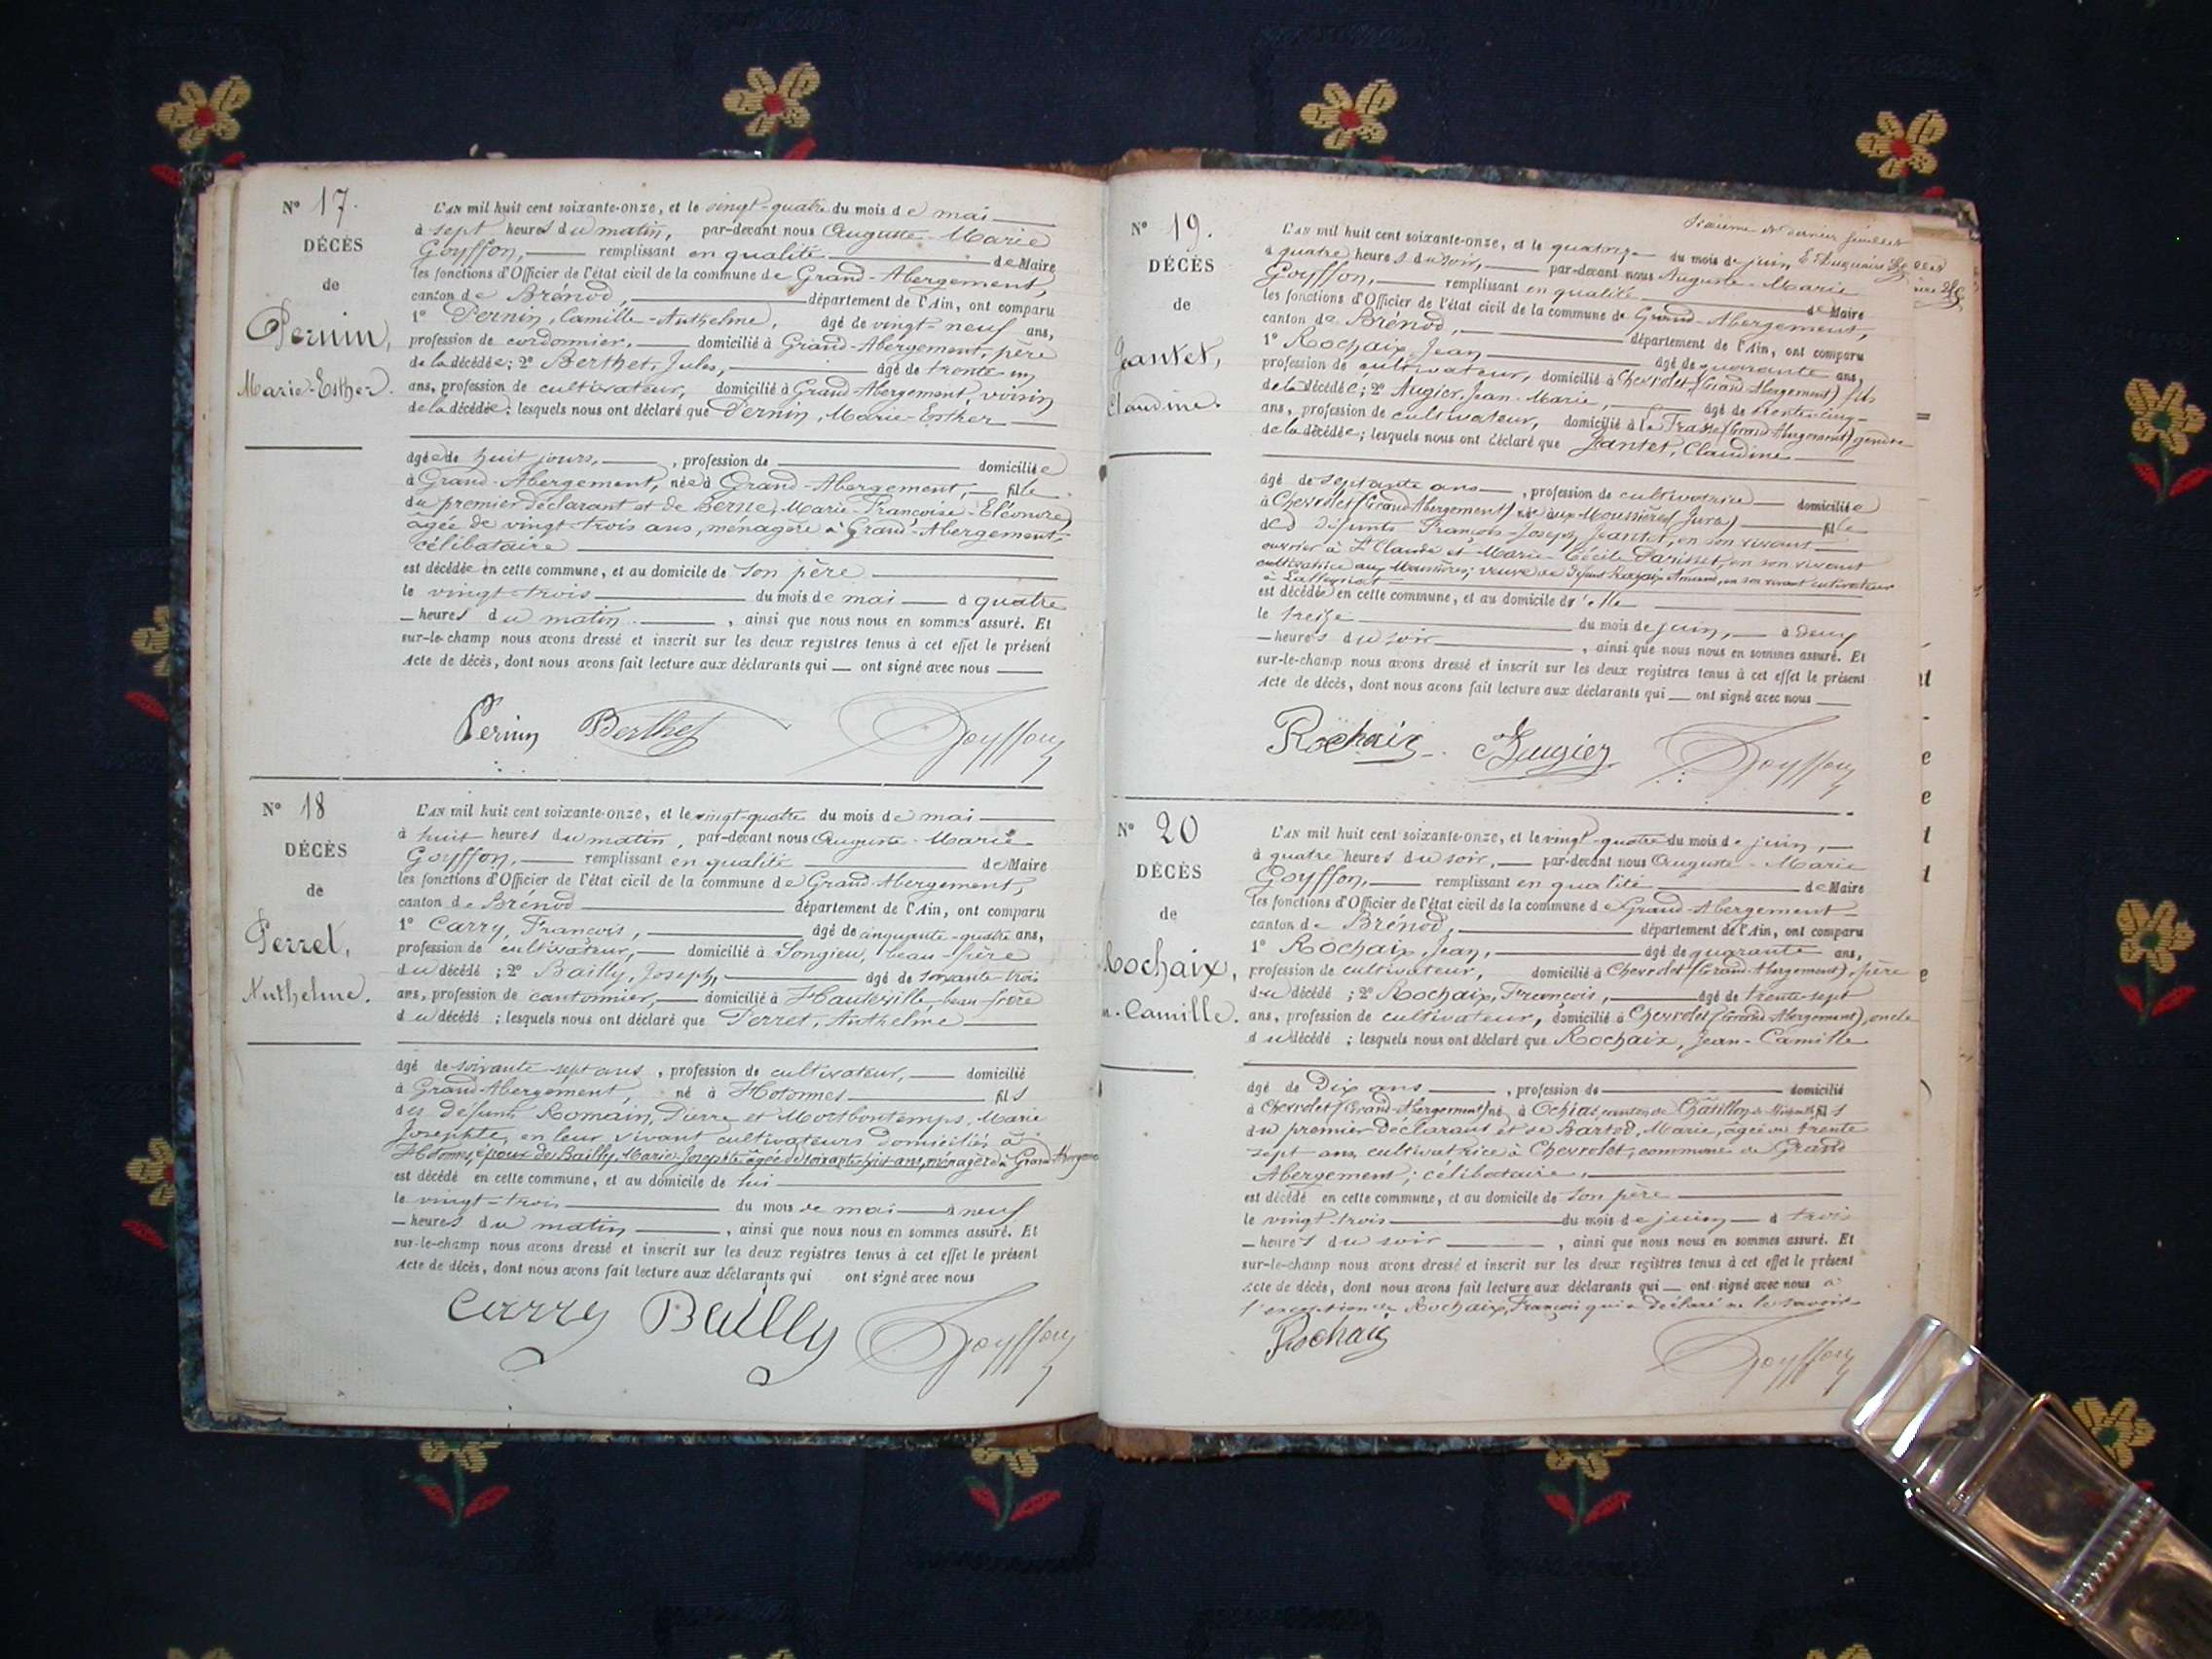 N° 17.
DÉCÈS
de
Pernin,
Marie-Esther.
L'AN mil huit cent soixante-onze, et le vingt-quatre du mois de mai
à sept heures du matin, par-devant nous Auguste-Marie
Goyffon, remplissant en qualité de Maire
les fonctions d'Officier de l'état civil de la commune de Grand-Abergement,
canton de Brénod, département de l'Ain, ont comparu
1° Pernin, Camille-Anthelme, âgé de vingt-neuf ans,
profession de cordonnier, domicilié à Grand-Abergement, père
de la décédée; 2° Berthet, Jules, âgé de trente-un
ans, profession de cultivateur, domicilié à Grand-Abergement, voisin
de la décédée; lesquels nous ont déclaré que Pernin, Marie-Esther
âgée de huit jours, , profession de domiciliée
à Grand-Abergement, née à Grand-Abergement, fille
du premier déclarant et de Berne, Marie-Françoise-Eléonore,
âgée de vingt-trois ans, ménagère à Grand-Abergement,
célibataire
est décédée en cette commune, et au domicile de son père
le vingt-trois du mois de mai à quatre
heures du matin , ainsi que nous nous en sommes assuré. Et
sur-le-champ nous avons dressé et inscrit sur les deux registres tenus à cet effet le présent
Acte de décès, dont nous avons fait lecture aux déclarants qui ont signé avec nous
Pernin Berthet Goyffon
N° 18
DÉCÈS
de
Perret,
Anthelme.
L'AN mil huit cent soixante-onze, et le vingt-quatre du mois de mai
à huit heures du matin, par-devant nous Auguste-Marie
Goyffon, remplissant en qualité de Maire
les fonctions d'Officier de l'état civil de la commune de Grand-Abergement,
canton de Brénod département de l'Ain, ont comparu
1° Carry, François, âgé de cinquante-quatre ans,
profession de cultivateur, domicilié à Songieu, beau-frère
du décédé ; 2° Bailly, Joseph, âgé de soixante-trois
ans, profession de cantonnier, domicilié à Hauteville, beau-frère
du décédé ; lesquels nous ont déclaré que Perret, Anthelme
âgé de soixante-sept ans , profession de cultivateur, domicilié
à Grand-Abergement, né à Hotonnes fils
des défunts Romain, Pierre et Mortbontemps, Marie
Josephte, en leur vivant cultivateurs domiciliés à
Hotonnes, époux de Bailly, Marie-Josephte âgée de soixante-huit ans, ménagère à Grand-Abergement
est décédé en cette commune, et au domicile de lui
le vingt-trois du mois de mai à neuf
heures du matin , ainsi que nous nous en sommes assuré. Et
sur-le-champ nous avons dressé et inscrit sur les deux registres tenus à cet effet le présent
Acte de décès, dont nous avons fait lecture aux déclarants qui ont signé avec nous
Carry Bailly Goyffon
N° 19.
DÉCÈS
de
Jeantet,
Claudine.
L'AN mil huit cent soixante-onze, et le quatorze du mois de juin
à quatre heures du soir, par-devant nous Auguste-Marie
Goyffon, remplissant en qualité de Maire
les fonctions d'Officier de l'état civil de la commune de Grand-Abergement,
canton de Brénod, département de l'Ain, ont comparu
1° Rochaix, Jean âgé de quarante ans,
profession de cultivateur, domicilié à Chevrolet (Grand Abergement) fils
de la décédée; 2° Augier, Jean-Marie, âgé de trente-cinq
ans, profession de cultivateur, domicilié à la (Grand-Abergement) gendre
de la décédée; lesquels nous ont déclaré que Jeantet, Claudine
âgé de septante ans , profession de cultivatrice domiciliée
à Chevrolet (Grand Abergement) née aux Moussières (Jura) fille
des défunts François-Joseph Jeantet, en son vivant
ouvrier à St Claude et Marie-Cécile en son vivant
cultivatrice aux Moussières; veuve de défunt Rochaix Amand, en son vivant cultivateur
à Lalleyriat
est décédée en cette commune, et au domicile d'elle
le treize du mois de juin, à deux
heures du soir , ainsi que nous nous en sommes assuré. Et
sur-le-champ nous avons dressé et inscrit sur les deux registres tenus à cet effet le présent
Acte de décès, dont nous avons fait lecture aux déclarants qui ont signé avec nous
Rochaix Augier Goyffon
N° 20
DÉCÈS
de
Rochaix,
n-Camille.
L'AN mil huit cent soixante-onze, et le vingt-quatre du mois de juin,
à quatre heures du soir, par-devant nous Auguste-Marie
Goyffon, remplissant en qualité de Maire
les fonctions d'Officier de l'état civil de la commune de Grand-Abergement
canton de Brénod, département de l'Ain, ont comparu
1° Rochaix, Jean, âgé de quarante ans,
profession de cultivateur, domicilié à Chevrolet (Grand-Abergement), père
du décédé ; 2° Rochaix, François, âgé de trente-sept
ans, profession de cultivateur, domicilié à Chevrolet (Grand Abergement), oncle
du décédé ; lesquels nous ont déclaré que Rochaix, Jean-Camille
âgé de Dix ans , profession de domicilié
à Chevrolet (Grand-Abergement) né à Ochiaz, canton de Châtillon de Michaille, fils
du premier déclarant et de Bartod, Marie, âgée de trente
sept ans, cultivatrice à Chevrolet, commune de Grand
Abergement; célibataire,
est décédé en cette commune, et au domicile de son père
le vingt-trois du mois de juin à trois
heures du soir , ainsi que nous nous en sommes assuré. Et
sur-le-champ nous avons dressé et inscrit sur les deux registres tenus à cet effet le présent
Acte de décès, dont nous avons fait lecture aux déclarants qui ont signé avec nous à
l'exception de Rochaix, François qui a déclaré ne le savoir
Rochaix Goyffon